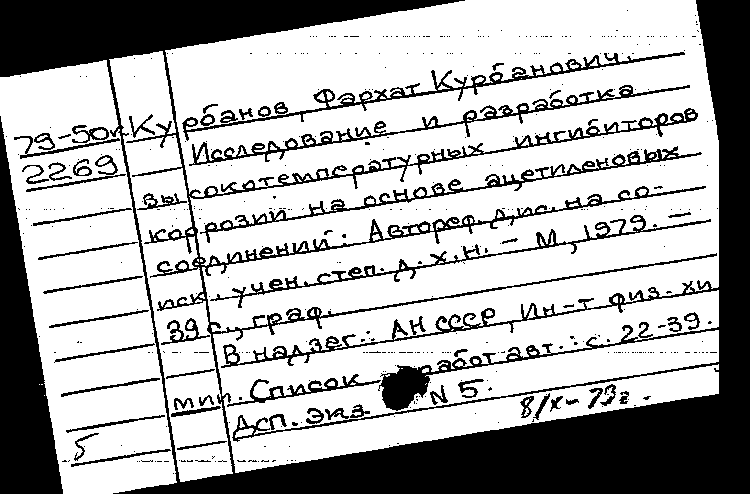 79-50к Курбанов, Фархат Курбанович.
2269 Исследование и разработка
высокотемпературных ингибиторов
коррозии на основе ацетиленовых
соединений: Автореф. дис. на со-
иск. учен. степ. д. х. н. - М, 1979. -
39 с., граф.
В надзаг.: АН СССР, Ин-т физ. хи
мии. Список работ авт.: с. 22-39.
Дсп. Экз N 5.
8/X-79г.
5